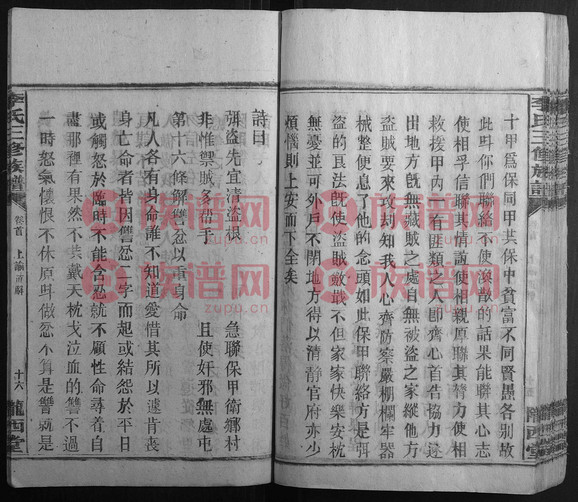 十甲爲保同甲共保中貧富不同賢愚各別故
此呌你們聯絡不使渙散的話果能聯其心志
使相孚信聯其情誼使相親原聯其臂力使相
救援甲內一有匪類之人卽齊心首告協力逐
出地方旣無藏賊之處自無被盜之家縱他方
盜賊要來攻刼知我人心齊防察嚴柵欄牢器
械整便息了他的念頭如此保甲聯絡方是弭
盜的良法旣使盜賊斂跡不但家家快樂安枕
無憂並可外戶不閉地方得以清靜官府亦少
煩惱則上安而下全矣
詩曰
弭盜先宜清盜根　急聯保甲衛鄉村
非惟禦賊多帮手　且使奸邪無處屯
第十六條解讐忿以重身命
凡人各有身命誰不知道愛惜其所以違背喪
身亡命者皆因讐忿二字而起或結怨於平日
或觸怒於臨時不能含忍就不顧性命尋着自
盡那裡有果然不共戴天枕戈泣血的讐不過
一時怒氣懷恨不休原與做忿不算是讐就是
李氏三修族譜
卷首　上諭直解
十六
隴西堂
李氏三修族譜
隴西堂
族谱网
zupu.cn
族谱网
zupu.cn
族谱网
zupu.cn
族谱网
zupu.cn